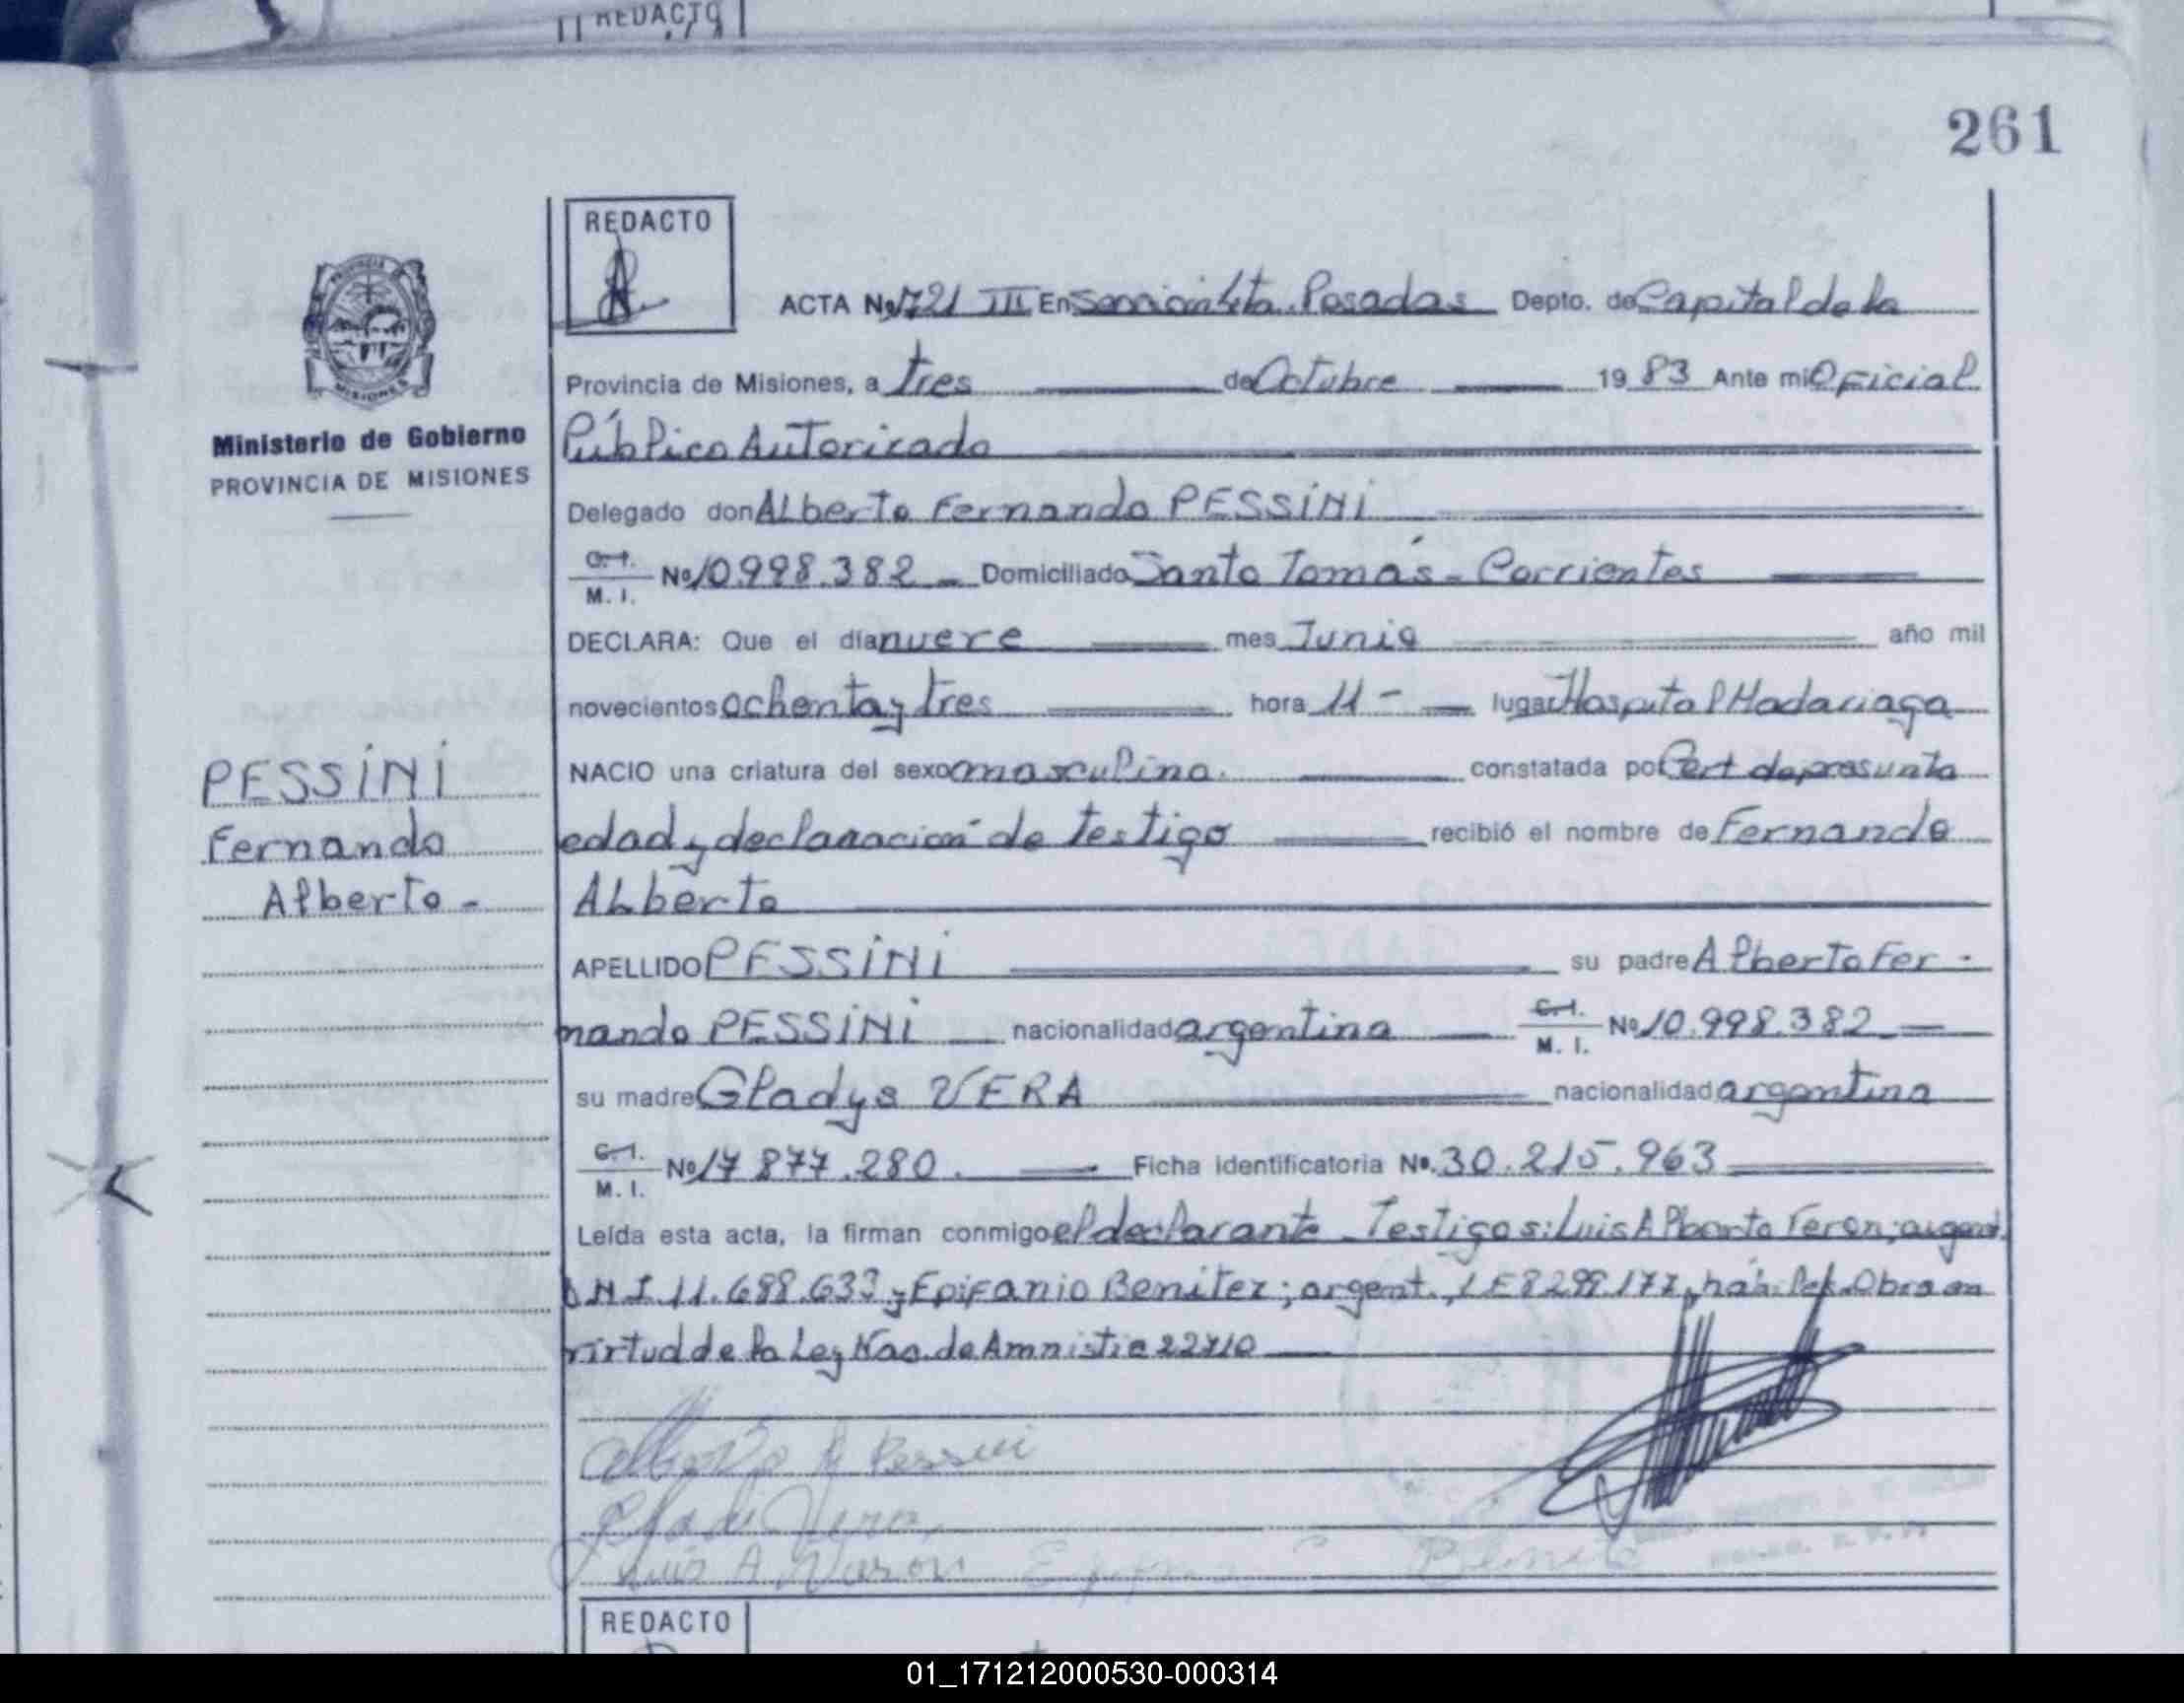 REDACTO
261
REDACTO
ACTA No 1721 III En Sección 4ta. Posadas Depto. de Capital de la
Provincia de Misiones, a tres de Octubre 19 83 Ante mi Oficial
Ministerio de Gobierno
PROVINCIA DE MISIONES
Público Autorizado
Delegado don Alberto Fernando PESSiNi
C.I.
M. I. No 10.998.382 - Domiciliado Santo Tomás - Corrientes
DECLARA: Que el día nueve mes Junio año mil
novecientos ochenta y tres hora 11 - lugar Hospital Madariaga
NACIO una criatura del sexo masculino. constatada por Cert de presunta
PESSiNi
Fernando
Alberto -
edad y declaración de testigo recibió el nombre de Fernando
Alberto
APELLIDO PESSiNi su padre Alberto Fer-
nando PESSiNi nacionalidad argentina C.I. M. I. No 10.998.382
su madre Gladys VERA nacionalidad argentina
C.I.
M. I. No 17.877.280. Ficha identificatoria No. 30.215.963
Leída esta acta, la firman conmigo el declarante - Testigos: Luis Alberto argent.
DNI 11.688.633 y Epifanio Benitez; argent., LE 8299.177, Obra en
virtud de la Ley Nac. de Amnistia 22410
Alberto F. Pessini
Vera
Luis A.
REDACTO
01_171212000530-000314